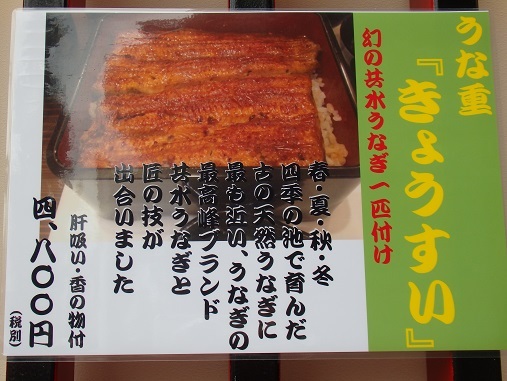 うな重
『きょうすい』
幻の共水うなぎ一匹付け
春・夏・秋・冬
四季の池で育んだ
古の天然うなぎに
最も近い、うなぎの
最高峰ブランド
共水うなぎと
匠の技が
出合いました
肝吸い・香の物付
四、八〇〇円
(税別)